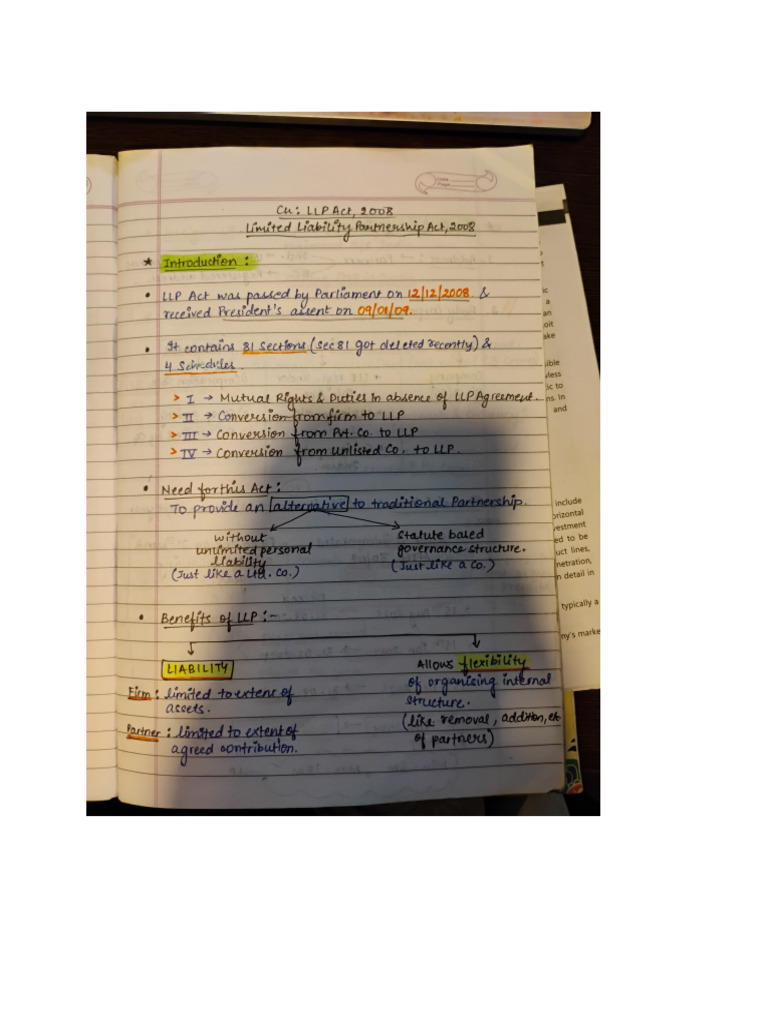 Ch: LLP Act, 2008
Limited Liability Partnership Act, 2008
★ Introduction :
• LLP Act was passed by Parliament on 12/12/2008 &
received President's assent on 09/01/09.
• It contains 81 Sections (Sec 81 got deleted recently) &
4 Schedules.
> I → Mutual Rights & Duties in absence of LLP Agreement.
> II → Conversion from firm to LLP
> III → Conversion from Pvt. Co. to LLP
> IV → Conversion from Unlisted Co. to LLP.
• Need for this Act :
To provide an alternative to traditional Partnership.
without
unlimited personal
liability
(Just like a Ltd. Co.)
Statute based
governance structure.
(Just like a Co.)
• Benefits of LLP :-
LIABILITY
Firm : limited to extent of
assets.
Partner : limited to extent of
agreed contribution.
Allows flexibility
of organising internal
structure.
(like removal, addition, etc
of partners)
include
vestment
ed to be
uct lines,
n detail in
typically a
ny's marke
and